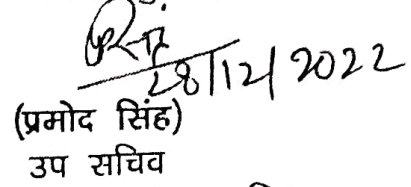 28/12/2022
(प्रमोद सिंह)
उप सचिव